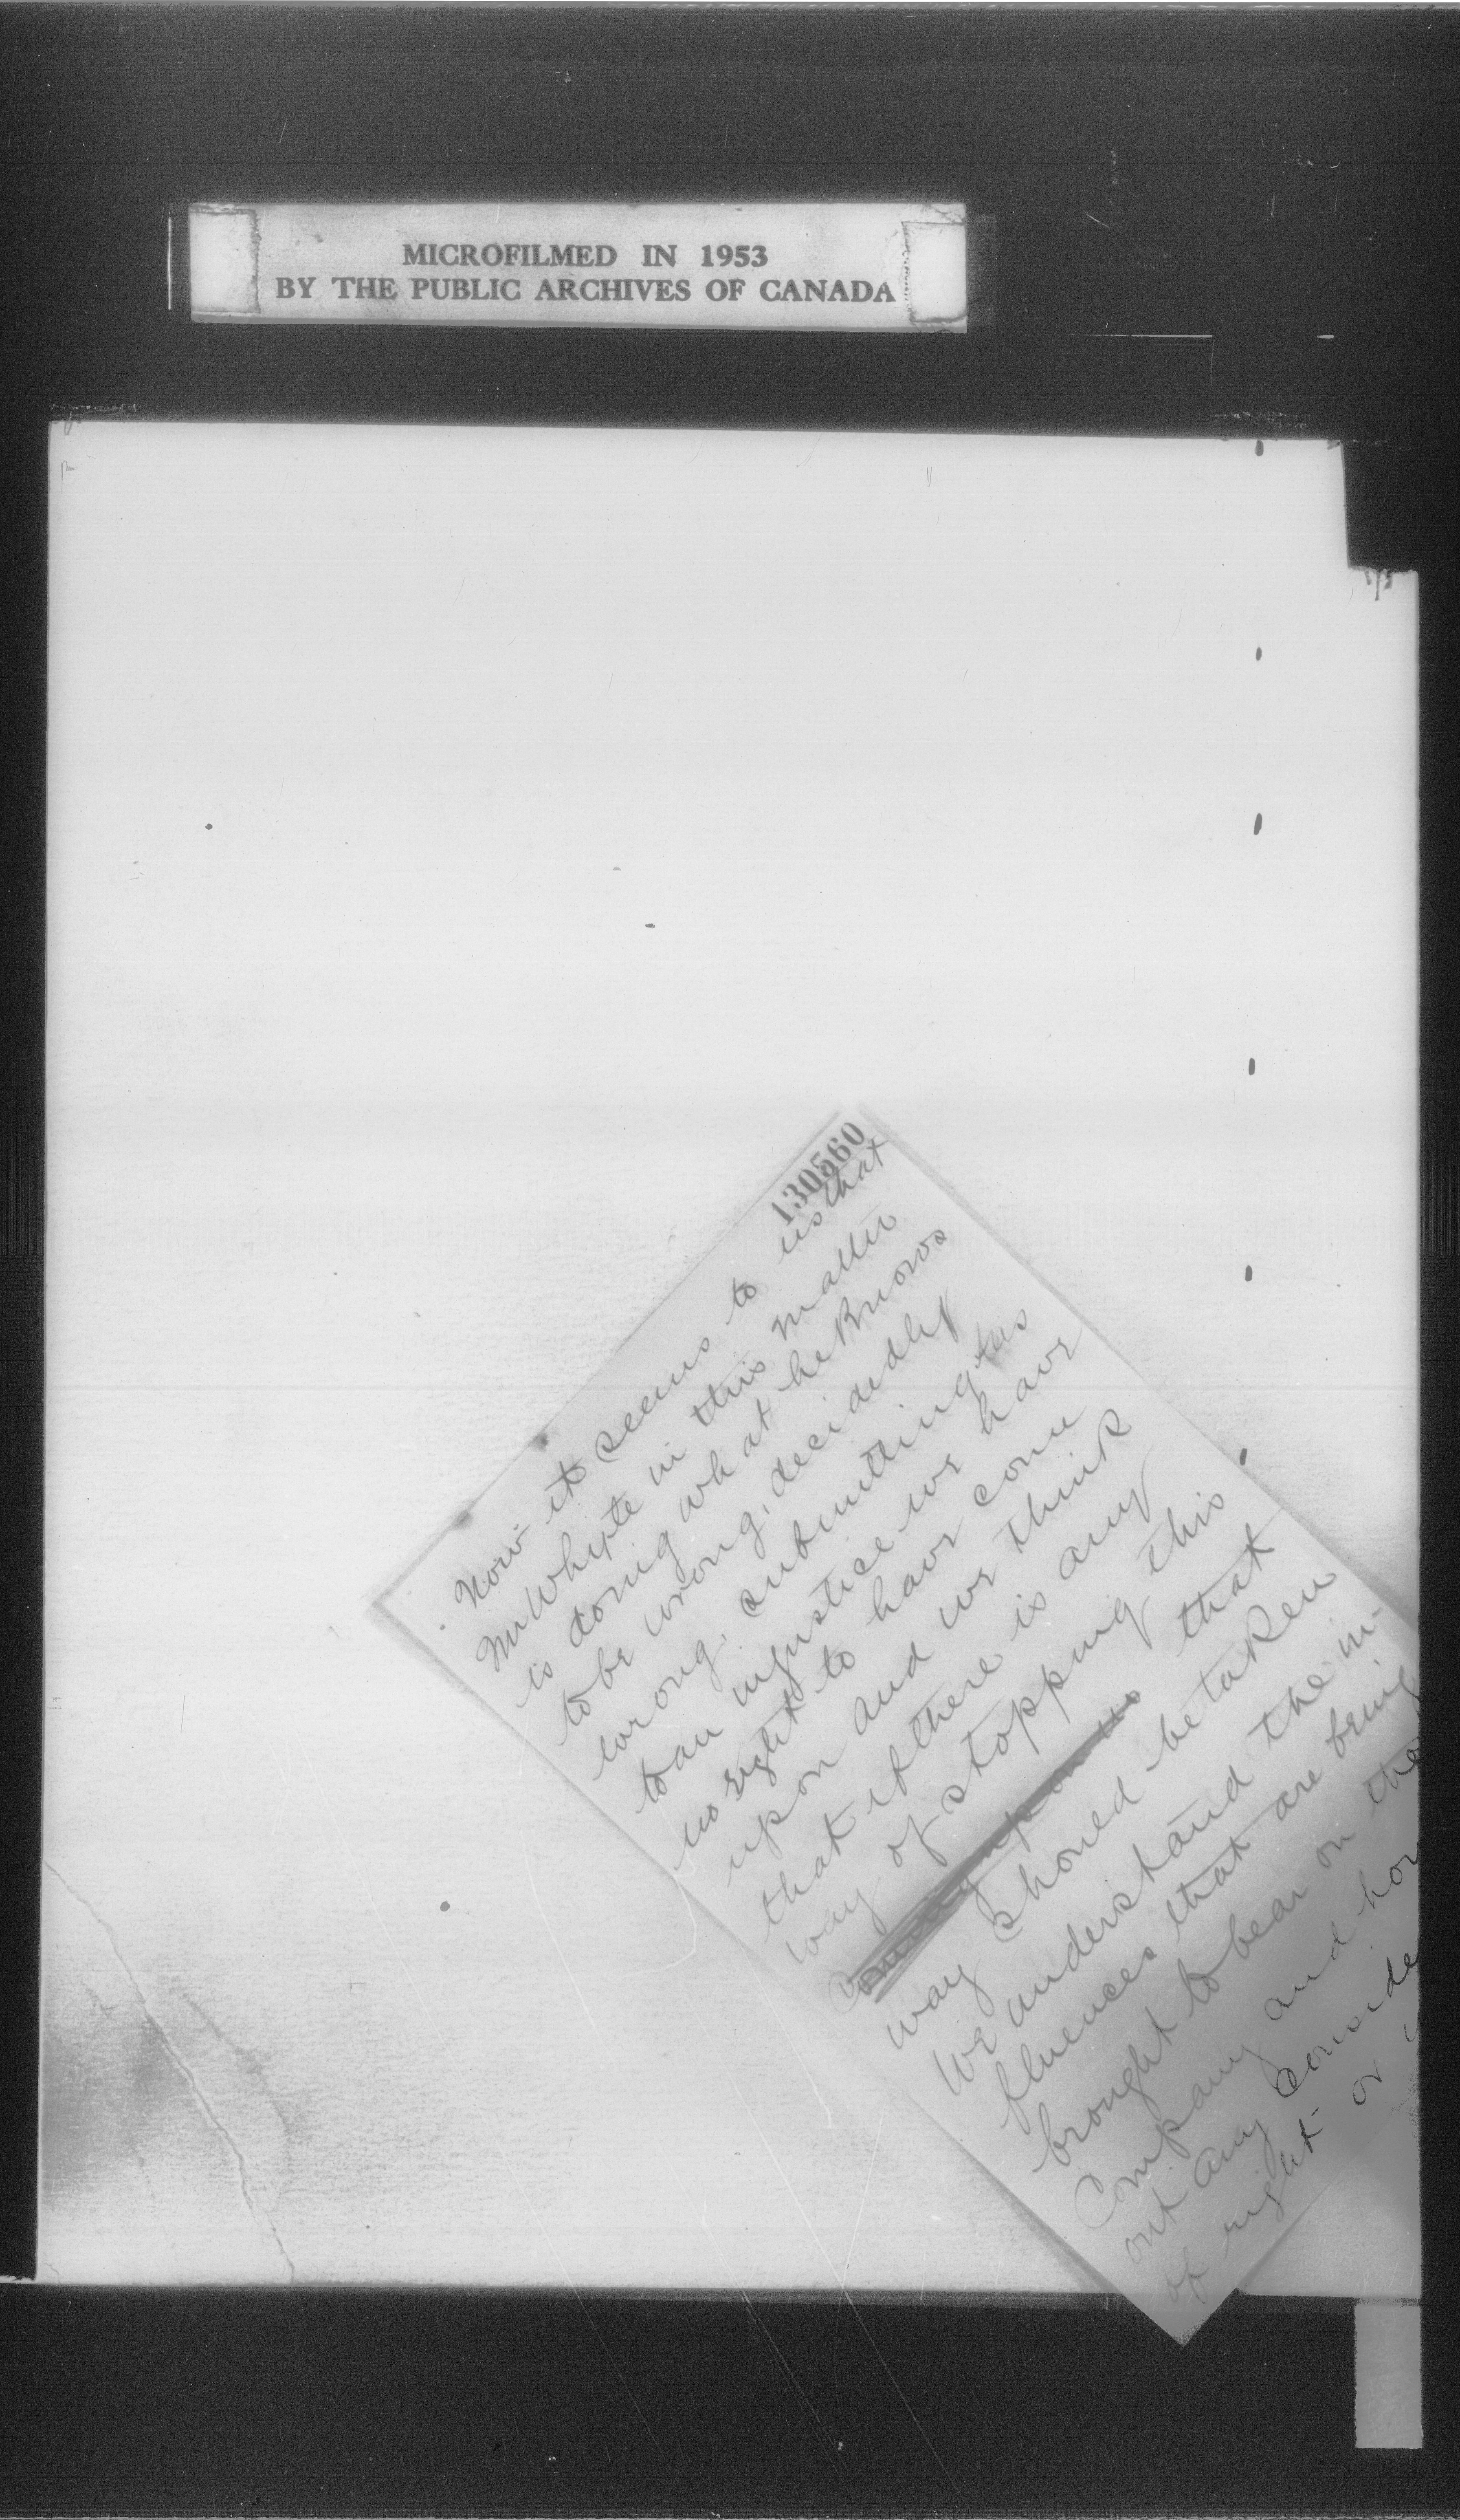 MICROFILMED IN 1953
BY THE PUBLIC ARCHIVES OF CANADA
130560
Now it seems to us that
Mr Whyte in this matter
is doing what he knows
to be wrong, decidedly
wrong, submitting us
to an injustice we have
no right to have come
upon and we think
that if there is any
way of stopping this
coming upon us that
way should be taken
We understand the in-
fluences that are being
brought to bear on the
Company and how
out any conside
of right or